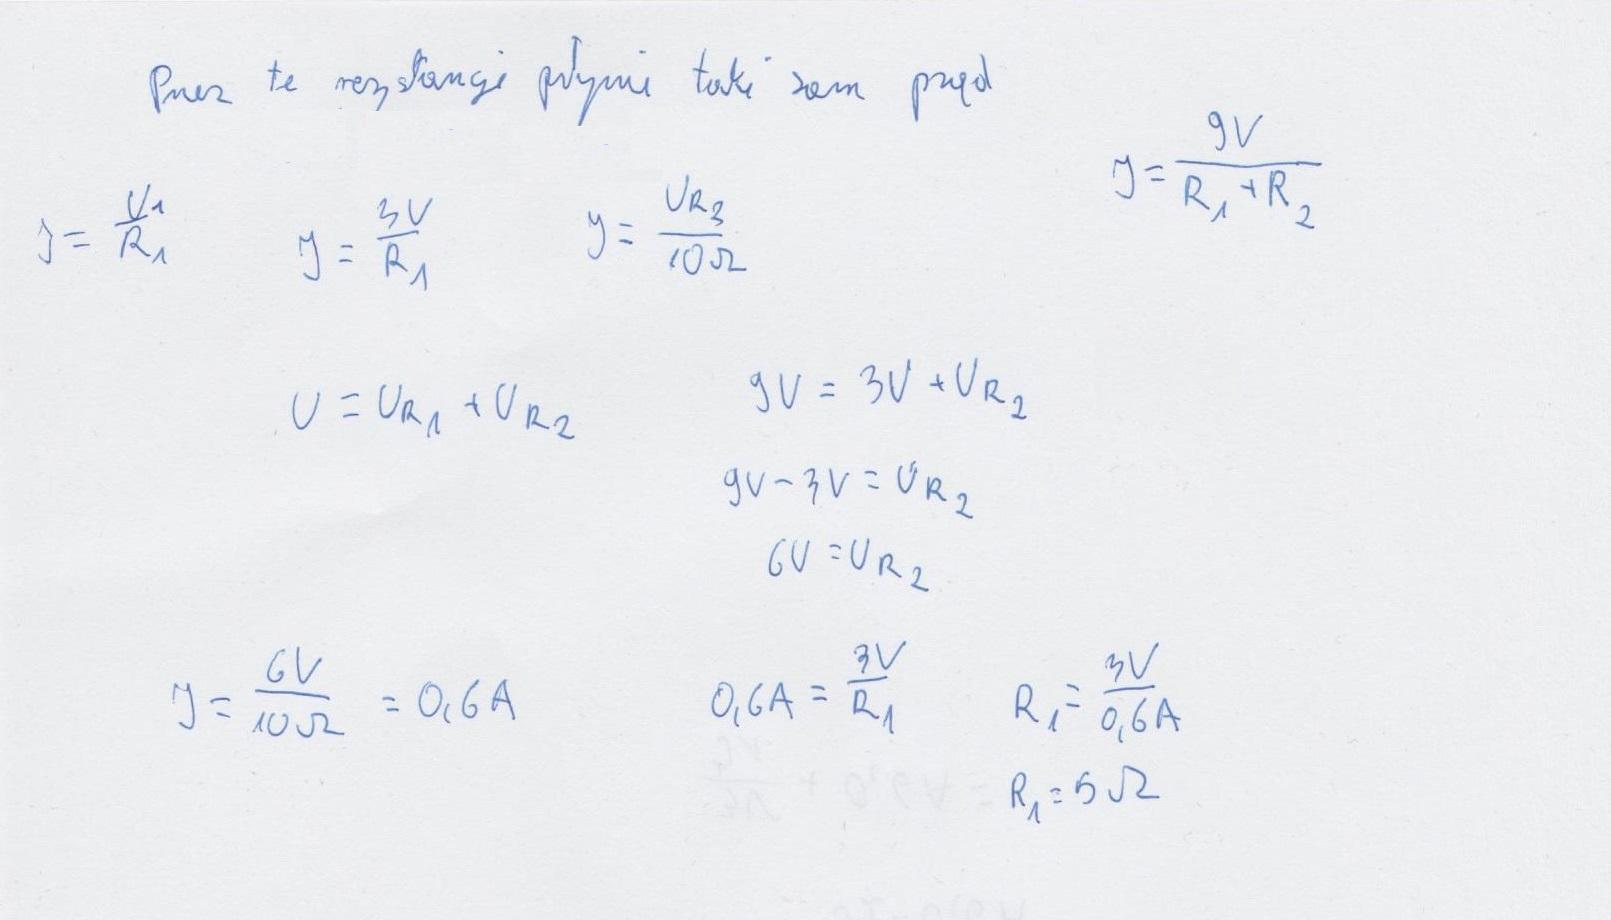 Przez te rezystancje płynie taki sam prąd
J = 9V / R1 + R2
J = U1 / R1 J = 3V / R1 J = UR2 / 10Ω
U = UR1 + UR2 9V = 3V + UR2
9V - 3V = UR2
6V = UR2
J = 6V / 10Ω = 0,6A 0,6A = 3V / R1 R1 = 3V / 0,6A
R1 = 5Ω